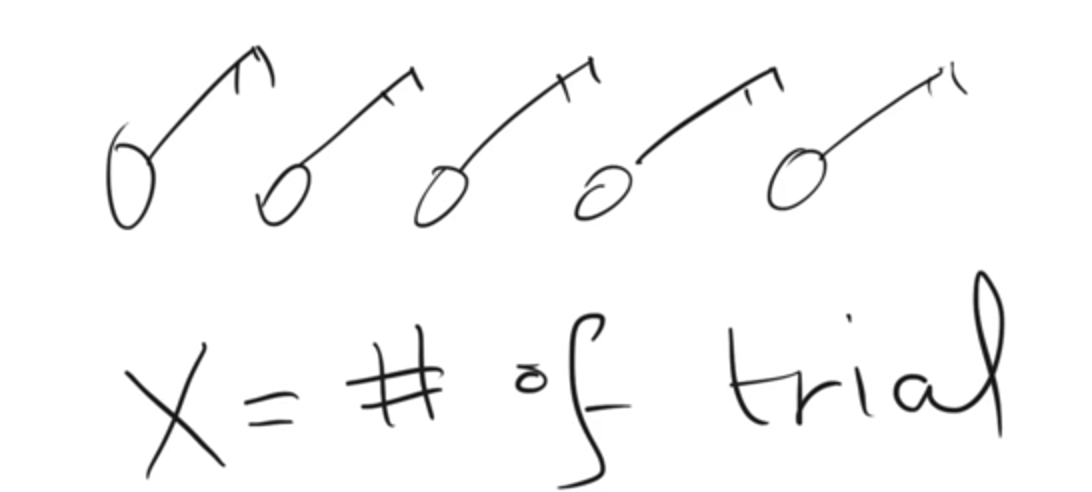 X = # of trial